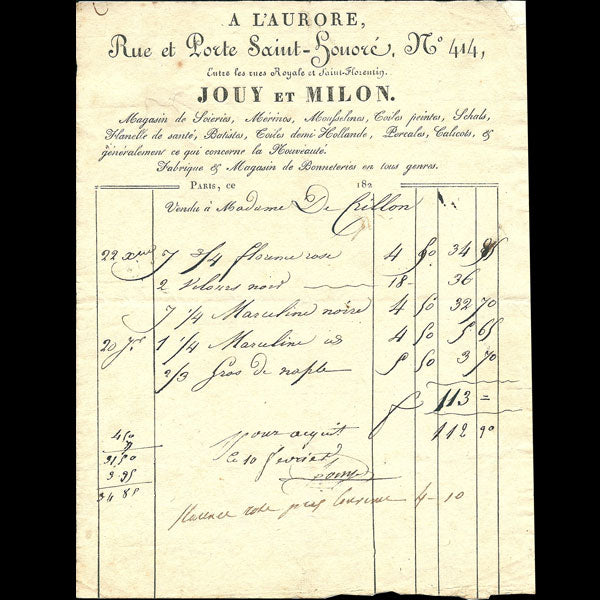 A L'AURORE,
Rue et Porte Saint-Honoré, N° 414,
Entre les rues Royale et Saint-Florentin.
JOUY ET MILON.
Magasin de Soieries, Mérinos, Mousselines, Toiles peintes, Schals,
Flanelle de santé, Batistes, Toiles demi-Hollande, Percales, Calicots, &
généralement ce qui concerne la Nouveauté.
Fabrique & Magasin de Bonneteries en tous genres.
PARIS, ce 182
Vendu à Madame De Crillon
22 Xbre 7 3/4 florence rose 4 50 34 85
2 Velours noir 18- 36
7 1/4 Marceline noire 4 50 32 70
20 Jr 1 1/4 Marceline id 4 50 5 65
2/3 Gros de naple 5 50 3 70
f 113 =
112 90
450
7
31 50
3 35
34 85
pour acquit
ce 10 février
florence rose 4-10